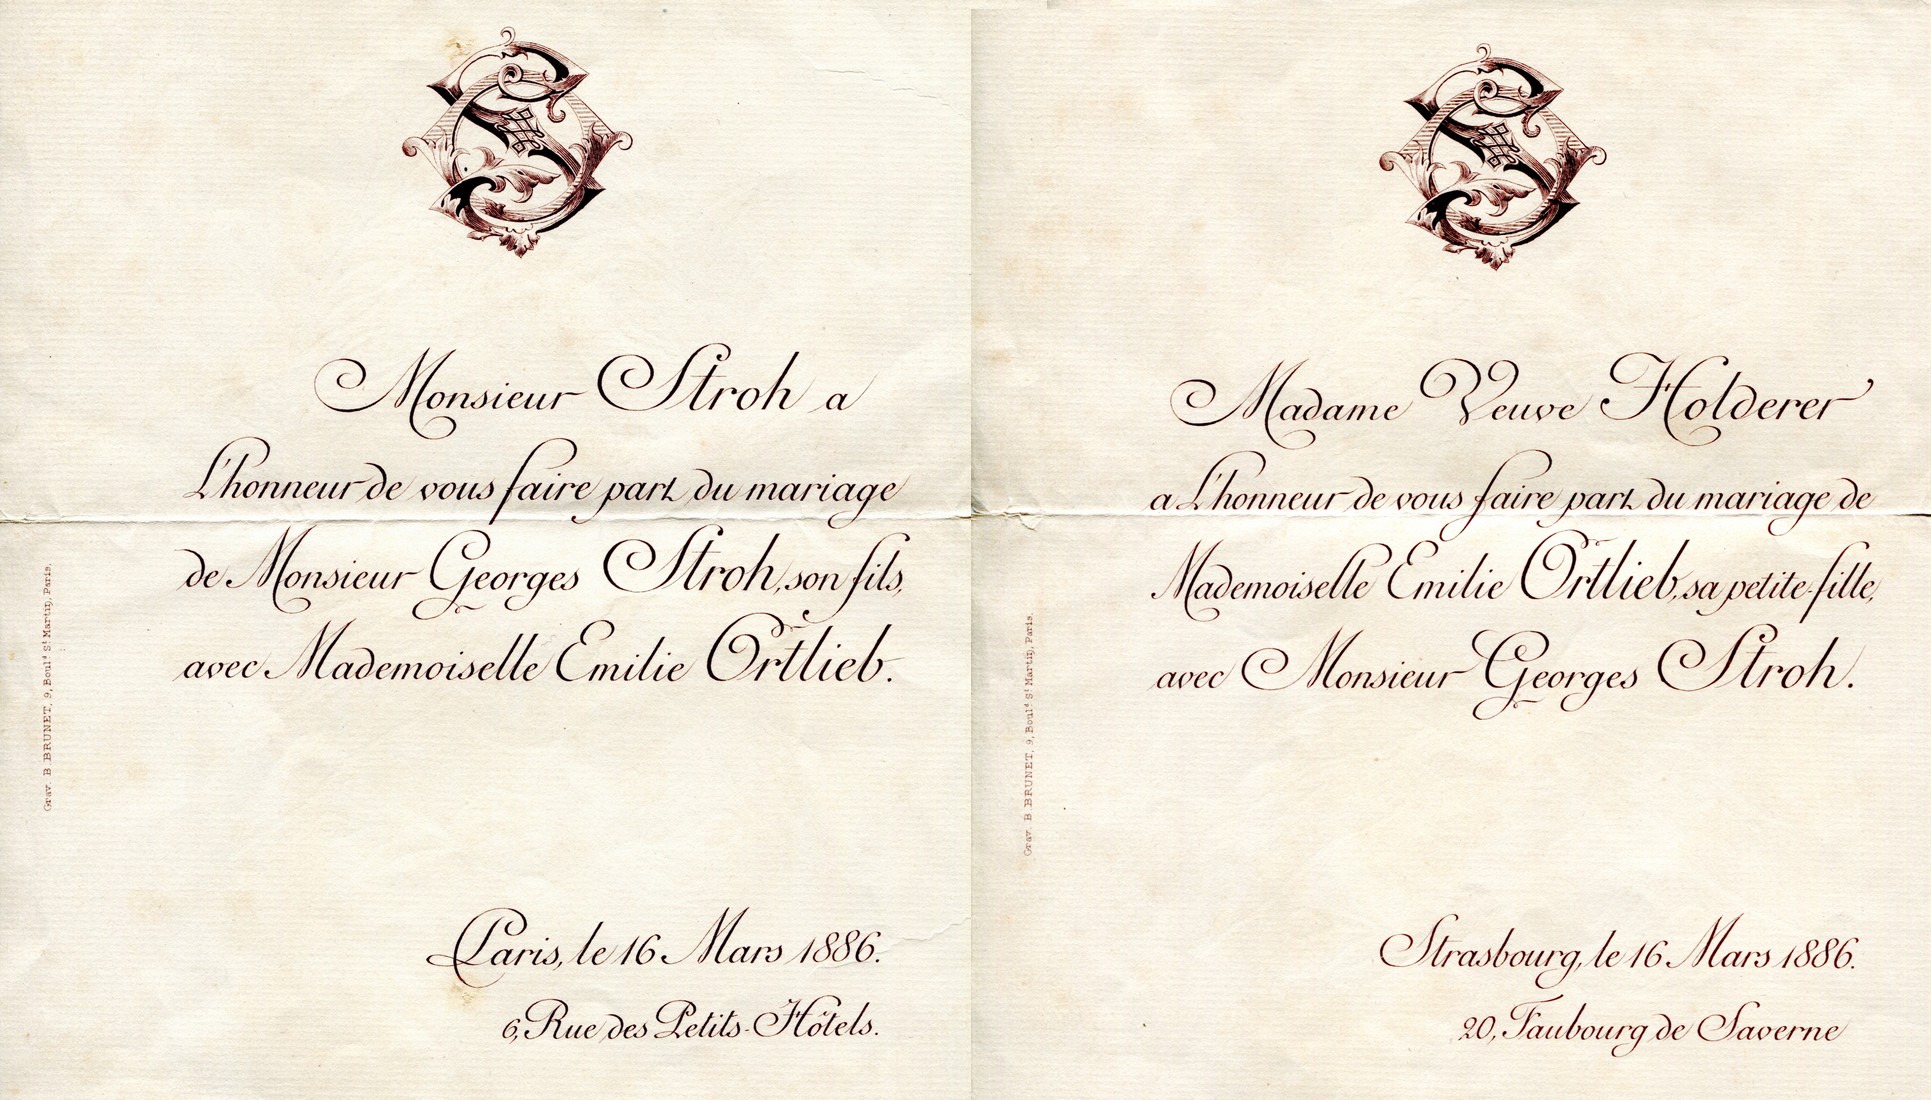 Monsieur Stroh a
L'honneur de vous faire part du mariage
de Monsieur Georges Stroh, son fils,
avec Mademoiselle Emilie Ortlieb.
Paris, le 16 Mars 1886.
6, Rue des Petits-Hôtels.
Grav. B. BRUNET, 9, Boul.d S.t Martin, Paris.
Madame Veuve Holderer
a L'honneur de vous faire part du mariage de
Mademoiselle Emilie Ortlieb, sa petite-fille,
avec Monsieur Georges Stroh.
Strasbourg, le 16 Mars 1886.
20, Faubourg de Saverne
Grav. B. BRUNET, 9, Boul.d S.t Martin, Paris.